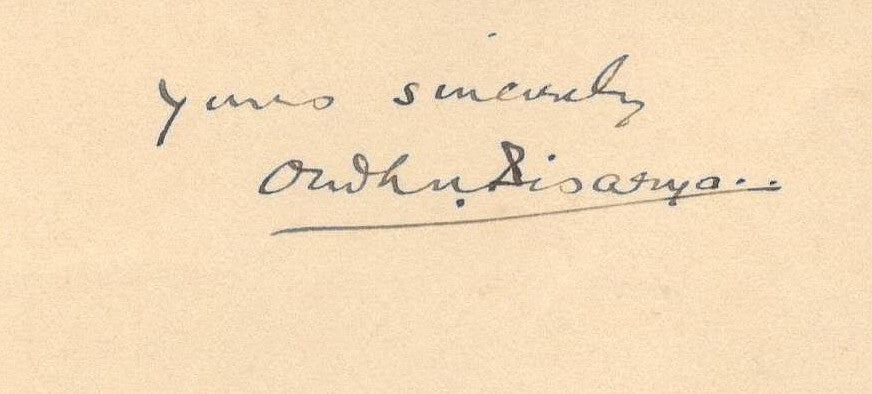 Yours sincerely
Oudhu. Bisarya..